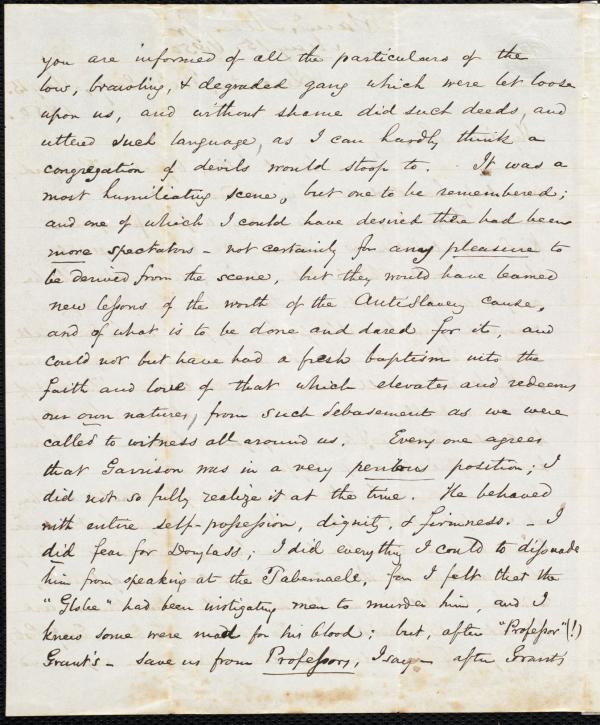 you are informed of all the particulars of the
low, brawling, & degraded gang which were let loose
upon us, and without shame did such deeds, and
uttered such language, as I can hardly think a
congregation of devils would stoop to. It was a
most humiliating scene, but one to be remembered;
and one of which I could have desired there had been
more spectators – not certainly for any pleasure to
be derived from the scene, but they would have learned
new lessons of the worth of the AntiSlavery cause,
and of what is to be done and dared for it, and
could not but have had a fresh baptism into the
faith and love of that which elevates and redeems
our own natures, from such debasement as we were
called to witness all around us. Every one agrees
that Garrison was in a very perilous position; I
did not so fully realize it at the time. He behaved
with entire self-possession, dignity, & firmness. – I
did fear for Douglass; I did everything I could to dissuade
him from speaking at the Tabernacle, for I felt that the
"Globe" had been instigating men to murder him, and I
knew some were mad for his blood; but, after "Professor"(!)
Grant's – save us from Professors, I say – after Grant's